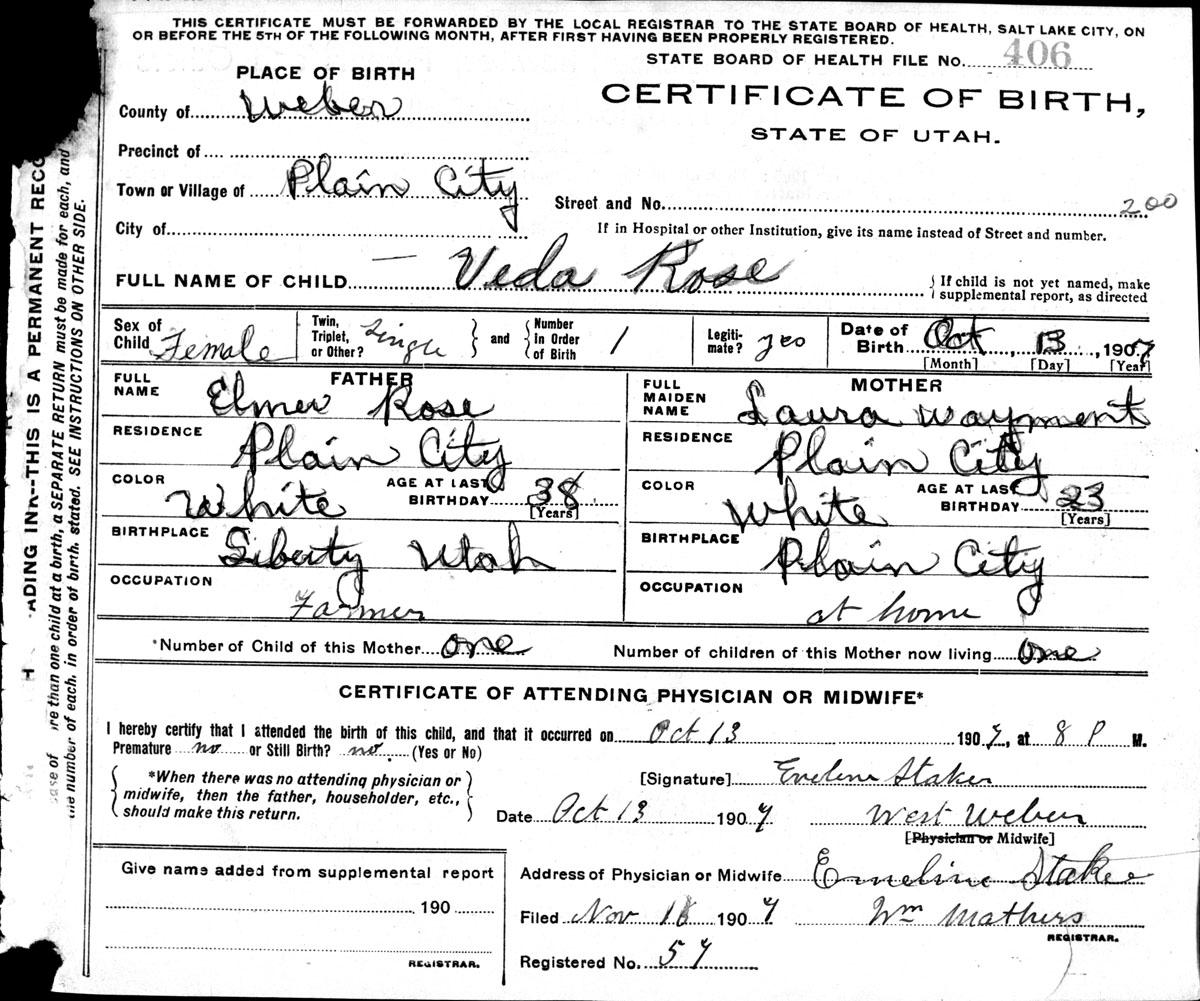 THIS CERTIFICATE MUST BE FORWARDED BY THE LOCAL REGISTRAR TO THE STATE BOARD OF HEALTH, SALT LAKE CITY, ON
OR BEFORE THE 5TH OF THE FOLLOWING MONTH, AFTER FIRST HAVING BEEN PROPERLY REGISTERED.
STATE BOARD OF HEALTH FILE No. 406
PLACE OF BIRTH
CERTIFICATE OF BIRTH,
STATE OF UTAH.
County of Weber
Precinct of
Town or Village of Plain City
Street and No. 200
City of
If in Hospital or other Institution, give its name instead of Street and number.
FULL NAME OF CHILD Veda Rose
If child is not yet named, make
supplemental report, as directed
Sex of Child Female
Twin, Triplet, or Other? Single
and
Number In Order of Birth 1
Legitimate? yes
Date of Birth Oct, 13, 1907
[Month] [Day] [Year]
FATHER
FULL NAME Elmer Rose
RESIDENCE Plain City
COLOR White
AGE AT LAST BIRTHDAY 38
[Years]
BIRTHPLACE Liberty Utah
OCCUPATION Farmer
MOTHER
FULL MAIDEN NAME Laura Wayment
RESIDENCE Plain City
COLOR White
AGE AT LAST BIRTHDAY 23
[Years]
BIRTHPLACE Plain City
OCCUPATION at home
*Number of Child of this Mother one
Number of children of this Mother now living one
CERTIFICATE OF ATTENDING PHYSICIAN OR MIDWIFE*
I hereby certify that I attended the birth of this child, and that it occurred on Oct 13 1907, at 8 P M.
Premature no or Still Birth? no (Yes or No)
*When there was no attending physician or
midwife, then the father, householder, etc.,
should make this return.
[Signature] Eveline Staker
Date Oct 13 1907 West Weber
[Physician or Midwife]
Give name added from supplemental report
190
REGISTRAR.
Address of Physician or Midwife Emeline Staker
Filed Nov 1907 Wm Mathers
REGISTRAR.
Registered No. 57
ADING IN--THIS IS A PERMANENT RECO
re than one child at a birth, a SEPARATE RETURN must be made for each, and
the number of each, in order of birth, stated. SEE INSTRUCTIONS ON OTHER SIDE.